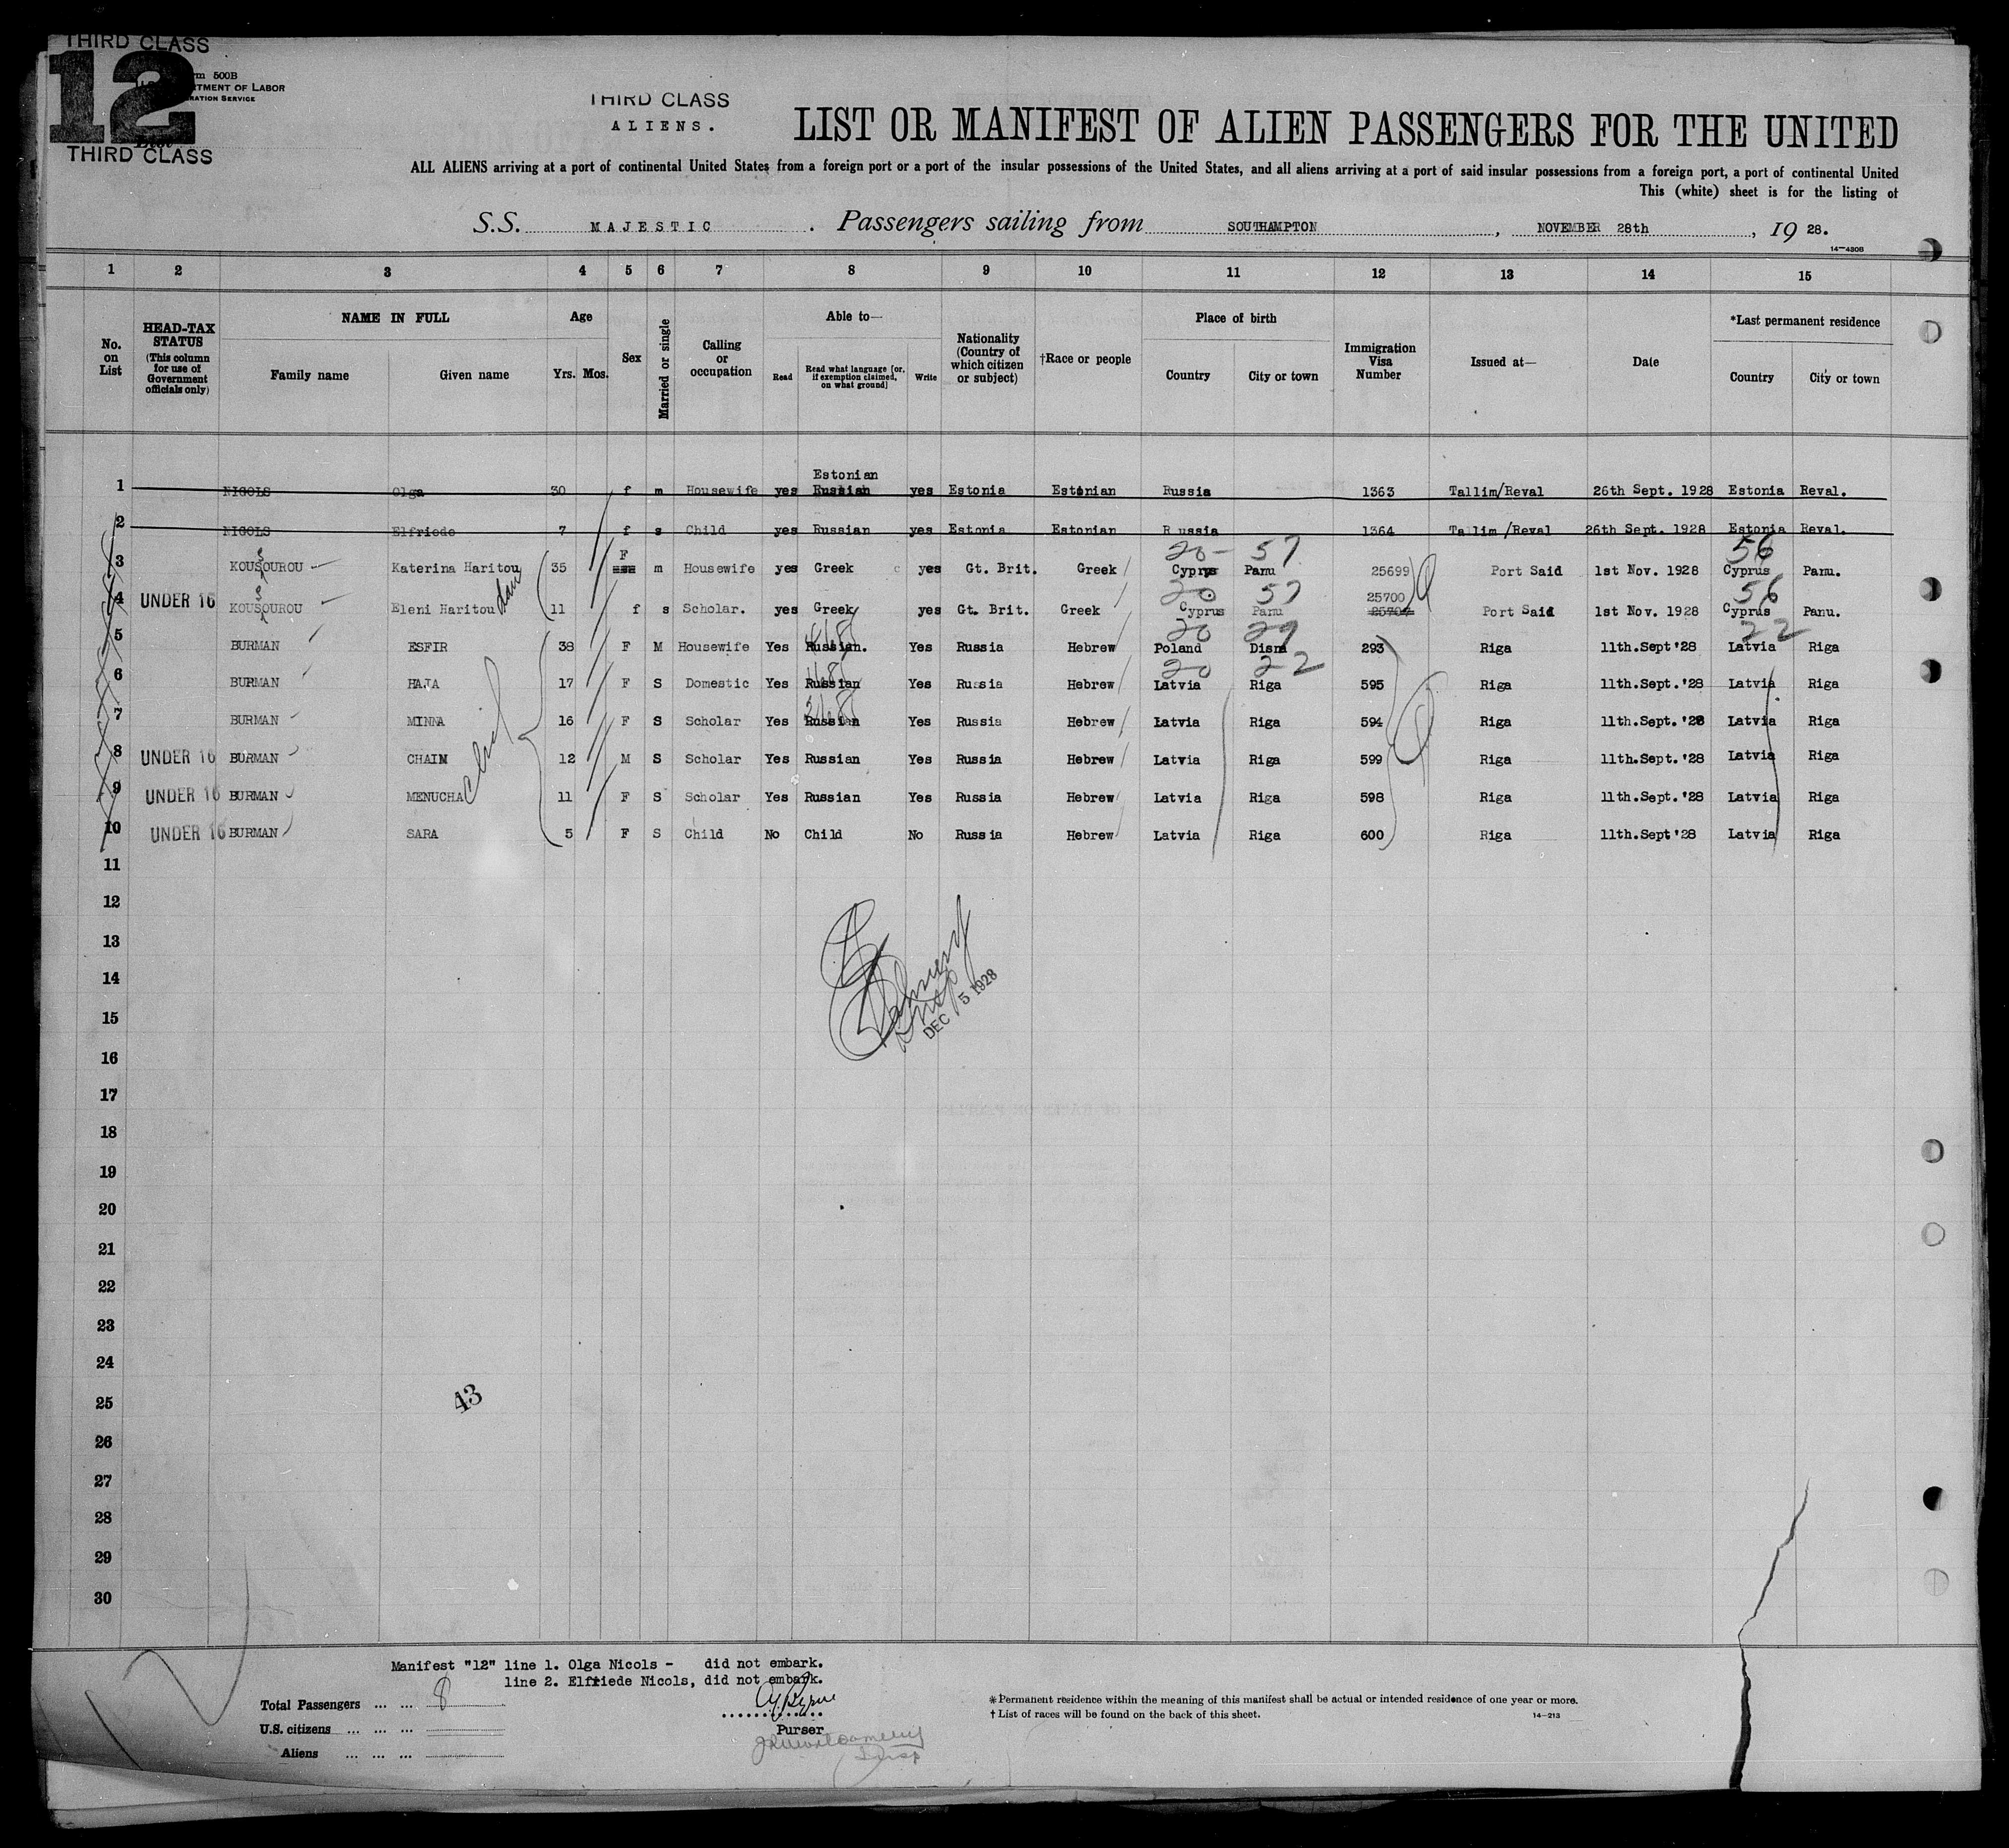 THIRD CLASS
12
rm 500B
RTMENT OF LABOR
RATION SERVICE
List
THIRD CLASS
THIRD CLASS
ALIENS.
LIST OR MANIFEST OF ALIEN PASSENGERS FOR THE UNITED
ALL ALIENS arriving at a port of continental United States from a foreign port or a port of the insular possessions of the United States, and all aliens arriving at a port of said insular possessions from a foreign port, a port of continental United
This (white) sheet is for the listing of
S.S. MAJESTIC . Passengers sailing from SOUTHAMPTON , NOVEMBER 28th , 19 28.
14—430B
1 2 3 4 5 6 7 8 9 10 11 12 13 14 15
No. on List
HEAD-TAX STATUS
(This column for use of Government officials only)
NAME IN FULL
Family name Given name
Age
Yrs. Mos.
Sex
Married or single
Calling or occupation
Able to—
Read
Read what language [or, if exemption claimed, on what ground]
Write
Nationality (Country of which citizen or subject)
†Race or people
Place of birth
Country City or town
Immigration Visa Number
Issued at—
Date
*Last permanent residence
Country City or town
Estonian
1 NIGOLS Olga 30 f m Housewife yes Russian yes Estonia Estonian Russia 1363 Tallim/Reval 26th Sept. 1928 Estonia Reval.
2 NIGOLS Elfriede 7 f s Child yes Russian yes Estonia Estonian Russia 1364 Tallim/Reval 26th Sept. 1928 Estonia Reval.
F 20- 57 56
3 KOUSOUROU Katerina Haritou 35 m Housewife yes Greek yes Gt. Brit. Greek Cyprus Panu 25699 Port Said 1st Nov. 1928 Cyprus Panu.
20 57 25700 56
4 UNDER 16 KOUSOUROU Eleni Haritou 11 f s Scholar. yes Greek yes Gt. Brit. Greek Cyprus Panu Port Said 1st Nov. 1928 Cyprus Panu.
20 29 22
5 BURMAN ESFIR 38 F M Housewife Yes Russian. Yes Russia Hebrew Poland Disna 293 Riga 11th.Sept '28 Latvia Riga
20 22
6 BURMAN HAJA 17 F S Domestic Yes Russian Yes Russia Hebrew Latvia Riga 595 Riga 11th.Sept.'28 Latvia Riga
7 BURMAN MINNA 16 F S Scholar Yes Russian Yes Russia Hebrew Latvia Riga 594 Riga 11th.Sept.'28 Latvia Riga
8 UNDER 16 BURMAN CHAIM 12 M S Scholar Yes Russian Yes Russia Hebrew Latvia Riga 599 Riga 11th.Sept.'28 Latvia Riga
9 UNDER 16 BURMAN MENUCHA 11 F S Scholar Yes Russian Yes Russia Hebrew Latvia Riga 598 Riga 11th.Sept.'28 Latvia Riga
10 UNDER 16 BURMAN SARA 5 F S Child No Child No Russia Hebrew Latvia Riga 600 Riga 11th.Sept '28 Latvia Riga
11
12
13
14
DEC 5 1928
15
16
17
18
19
20
21
22
23
24
43
25
26
27
28
29
30
Manifest "12" line 1. Olga Nicols - did not embark.
line 2. Elfriede Nicols, did not embark.
Total Passengers ... ... 8
U.S. citizens ... ... ...
Aliens ... ... ...
Purser
*Permanent residence within the meaning of this manifest shall be actual or intended residence of one year or more.
†List of races will be found on the back of this sheet.
14—213